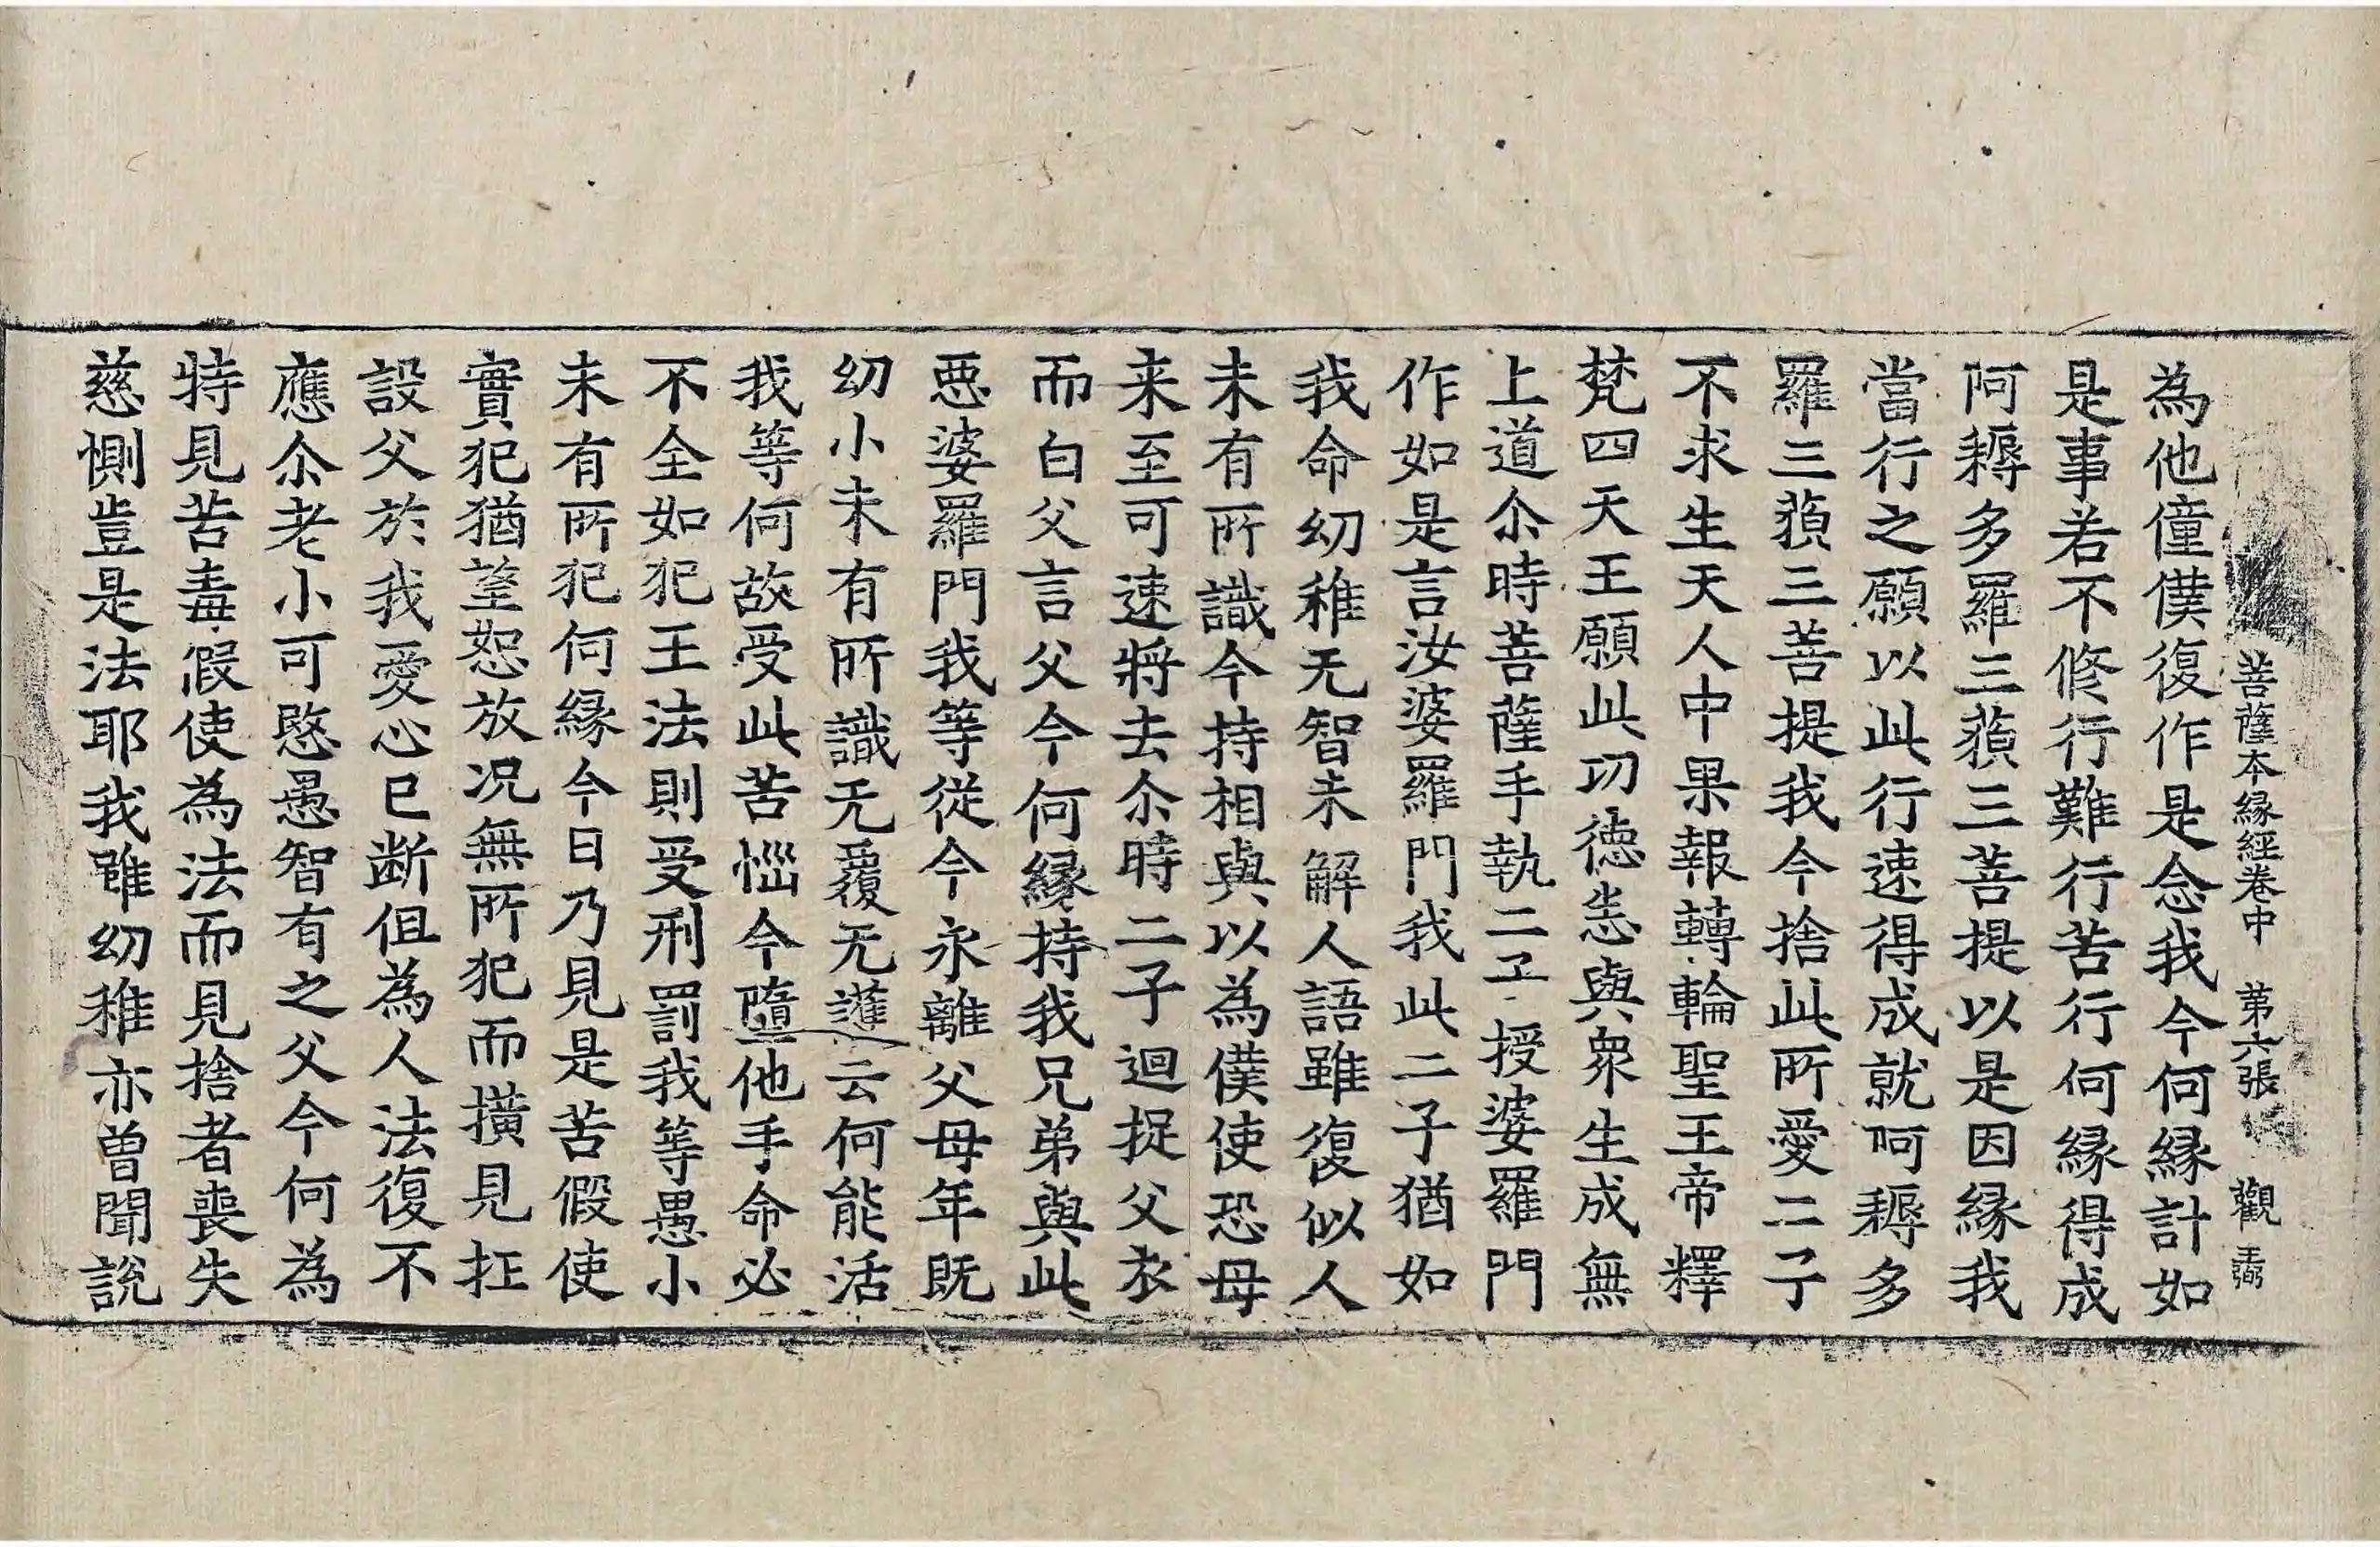 菩薩本縁經卷中 第六張 觀
為他僮僕復作是念我今何縁計如
是事若不修行難行苦行何縁得成
阿耨多羅三藐三菩提以是因縁我
當行之願以此行速得成就阿耨多
羅三藐三菩提我今捨此所愛二子
不求生天人中果報轉輪聖王帝釋
梵四天王願此功德恙與衆生成無
上道尒時菩薩手執二子授婆羅門
作如是言汝婆羅門我此二子猶如
我命幼稚无智未解人語雖復似人
未有所識今持相與以為僕使恐母
来至可速將去尒時二子迴捉父衣
而白父言父今何縁持我兄弟與此
惡婆羅門我等從今永離父母年既
幼小未有所識无覆无護云何能活
我等何故受此苦惱今墮他手命必
不全如犯王法則受刑罰我等愚小
未有所犯何縁今日乃見是苦假使
實犯猶望恕放况無所犯而橫見抂
設父於我愛心已断但為人法復不
應尒老小可愍愚智有之父今何為
特見苦毒假使為法而見捨者喪失
慈惻豈是法耶我雖幼稚亦曽聞說